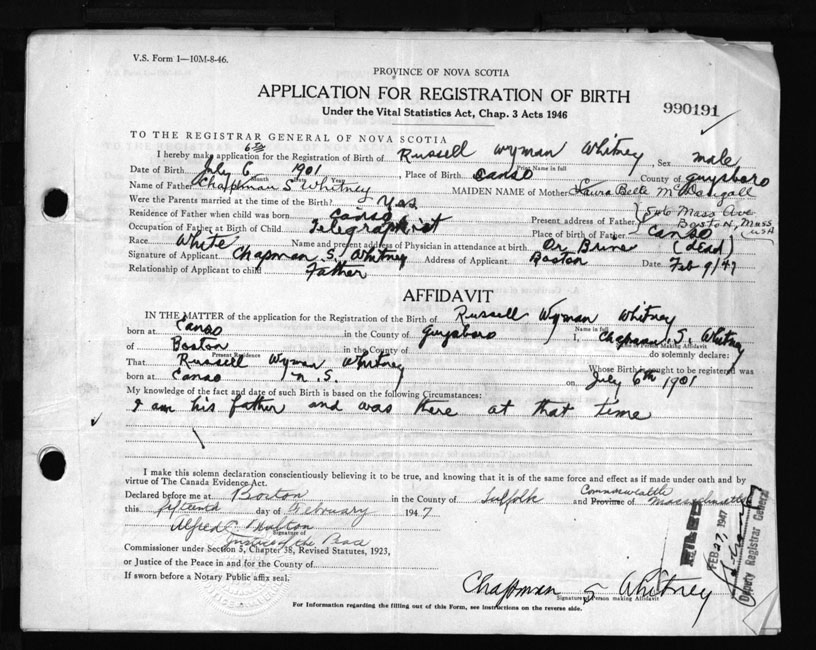 V.S. Form 1—10M-8-46.
PROVINCE OF NOVA SCOTIA
APPLICATION FOR REGISTRATION OF BIRTH
990191
Under the Vital Statistics Act, Chap. 3 Acts 1946
TO THE REGISTRAR GENERAL OF NOVA SCOTIA
I hereby make application for the Registration of Birth of Russell Wyman Whitney, Sex male
Print Name in full
6th
Date of Birth July 6 1901, Place of Birth Canso County of Guysboro
Month Day Year
Name of Father Chapman S Whitney MAIDEN NAME of Mother Laura Belle McDougall
Were the Parents married at the time of Birth? Yes
Residence of Father when child was born Canso Present address of Father 546 Mass Ave Boston, Mass USA
Occupation of Father at Birth of Child Telegraphist Place of birth of Father Canso
Race White Name and present address of Physician in attendance at birth Dr Brine (dead)
Signature of Applicant Chapman S. Whitney Address of Applicant Boston Date Feb 9/47
Relationship of Applicant to child Father
AFFIDAVIT
IN THE MATTER of the application for the Registration of the Birth of Russell Wyman Whitney
Name in full
born at Canso in the County of Guysboro I, Chapman S. Whitney
Name of Person Making Affidavit
of Boston in the County of do solemnly declare:
Present Residence
That Russell Wyman Whitney Whose Birth is sought to be registered was
born at Canso N.S. on July 6th 1901
My knowledge of the fact and date of such Birth is based on the following Circumstances:
I am his father and was there at that time
I make this solemn declaration conscientiously believing it to be true, and knowing that it is of the same force and effect as if made under oath and by
virtue of The Canada Evidence Act.
Commonwealth
Declared before me at Boston in the County of Suffolk and Province of Massachusetts
this fifteenth day of February 1947
Alfred
Signature of
Justice of the Peace
Commissioner under Section 5, Chapter 38, Revised Statutes, 1923,
or Justice of the Peace in and for the County of
If sworn before a Notary Public affix seal.
Chapman S Whitney
Signature of Person making Affidavit
For Information regarding the filling out of this Form, see instructions on the reverse side.
FILED
FEB 27, 1947
Deputy Registrar General